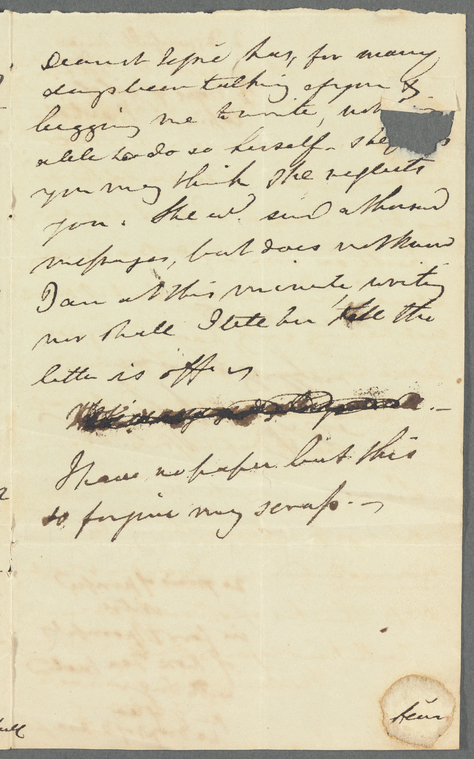 Dearest Essie has, for many
days been talking of you &
begging me to write, not
able to do so herself - She
you may think she neglects
you. She wd. send a thousand
messages, but does not know
I am at this minute writing
nor shall I tell her till the
letter is off
I have no paper but this
so forgive my scrap -